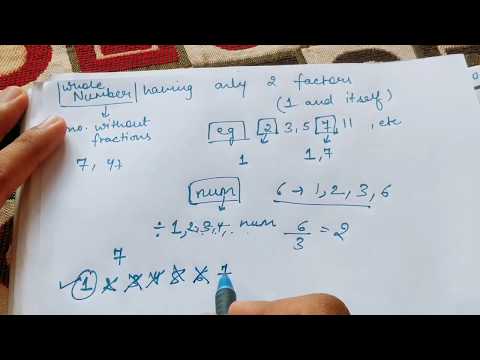 Whole Number having only 2 factors
(1 and itself)
no. without fractions
eg 2 3, 5 7, 11, etc
7, 47
1 1, 7
num 6 → 1, 2, 3, 6
÷ 1, 2, 3, 4, .. num 6/3 = 2
7
✓ 1 2 3 4 5 6 7